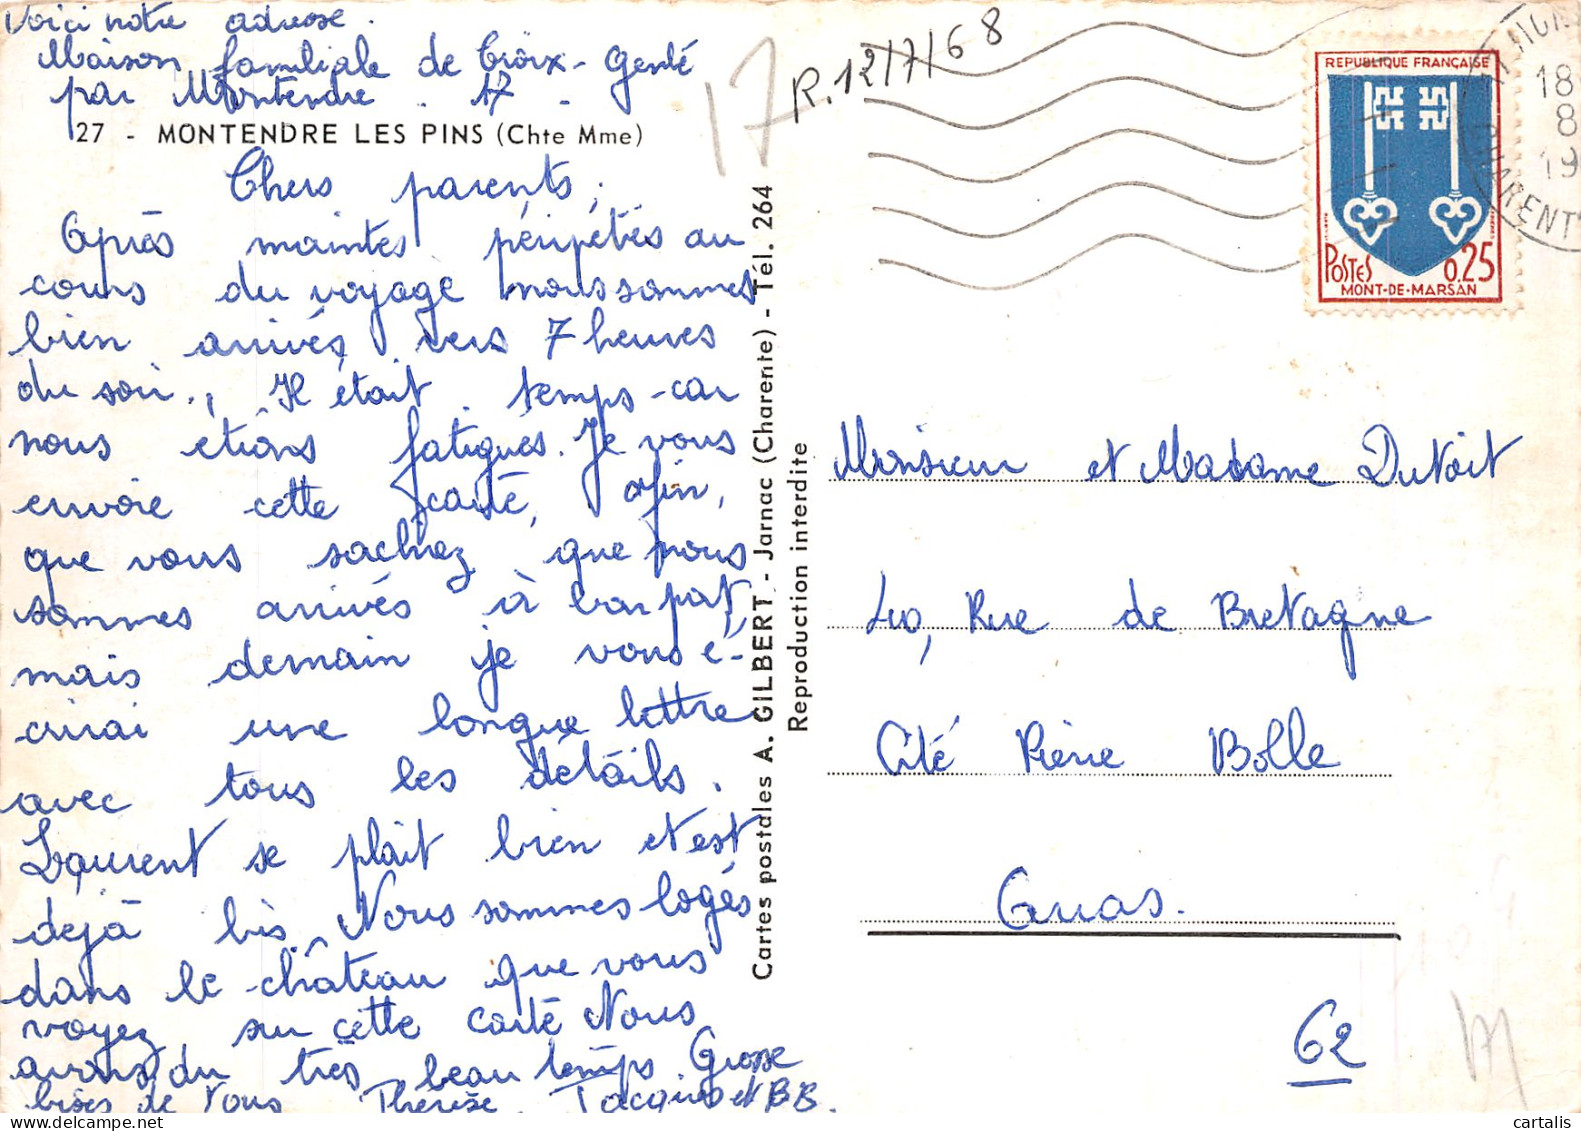 Voici notre adresse.
Maison familiale de Croix-Genté
par Montendre . 17 .
27 - MONTENDRE LES PINS (Chte Mme)
Chers parents,
Après maintes péripéties au
cours du voyage nous sommes
bien arrivés vers 7 heures
du soir., Il était temps car
nous étions fatigués. Je vous
envoie cette carte, afin,
que vous sachiez que nous
sommes arrivés à bon port,
mais demain je vous é-
crirai une longue lettre
avec tous les détails.
Laurent se plait bien et est
déjà Nous sommes logés
dans le château que vous
voyez sur cette carte Nous
avons du très beau temps Grosse
bises de Nous Thérèse Jacques et BB.
17
R. 12/7/68
Cartes postales A. GILBERT - Jarnac (Charente) - Tél. 264
Reproduction interdite
REPUBLIQUE FRANÇAISE
POSTES 0,25
MONT-DE-MARSAN
18
8
19
CHARENT
Monsieur et Madame Dutoit
Rue de Bretagne
Cité Pierre Bolle
62